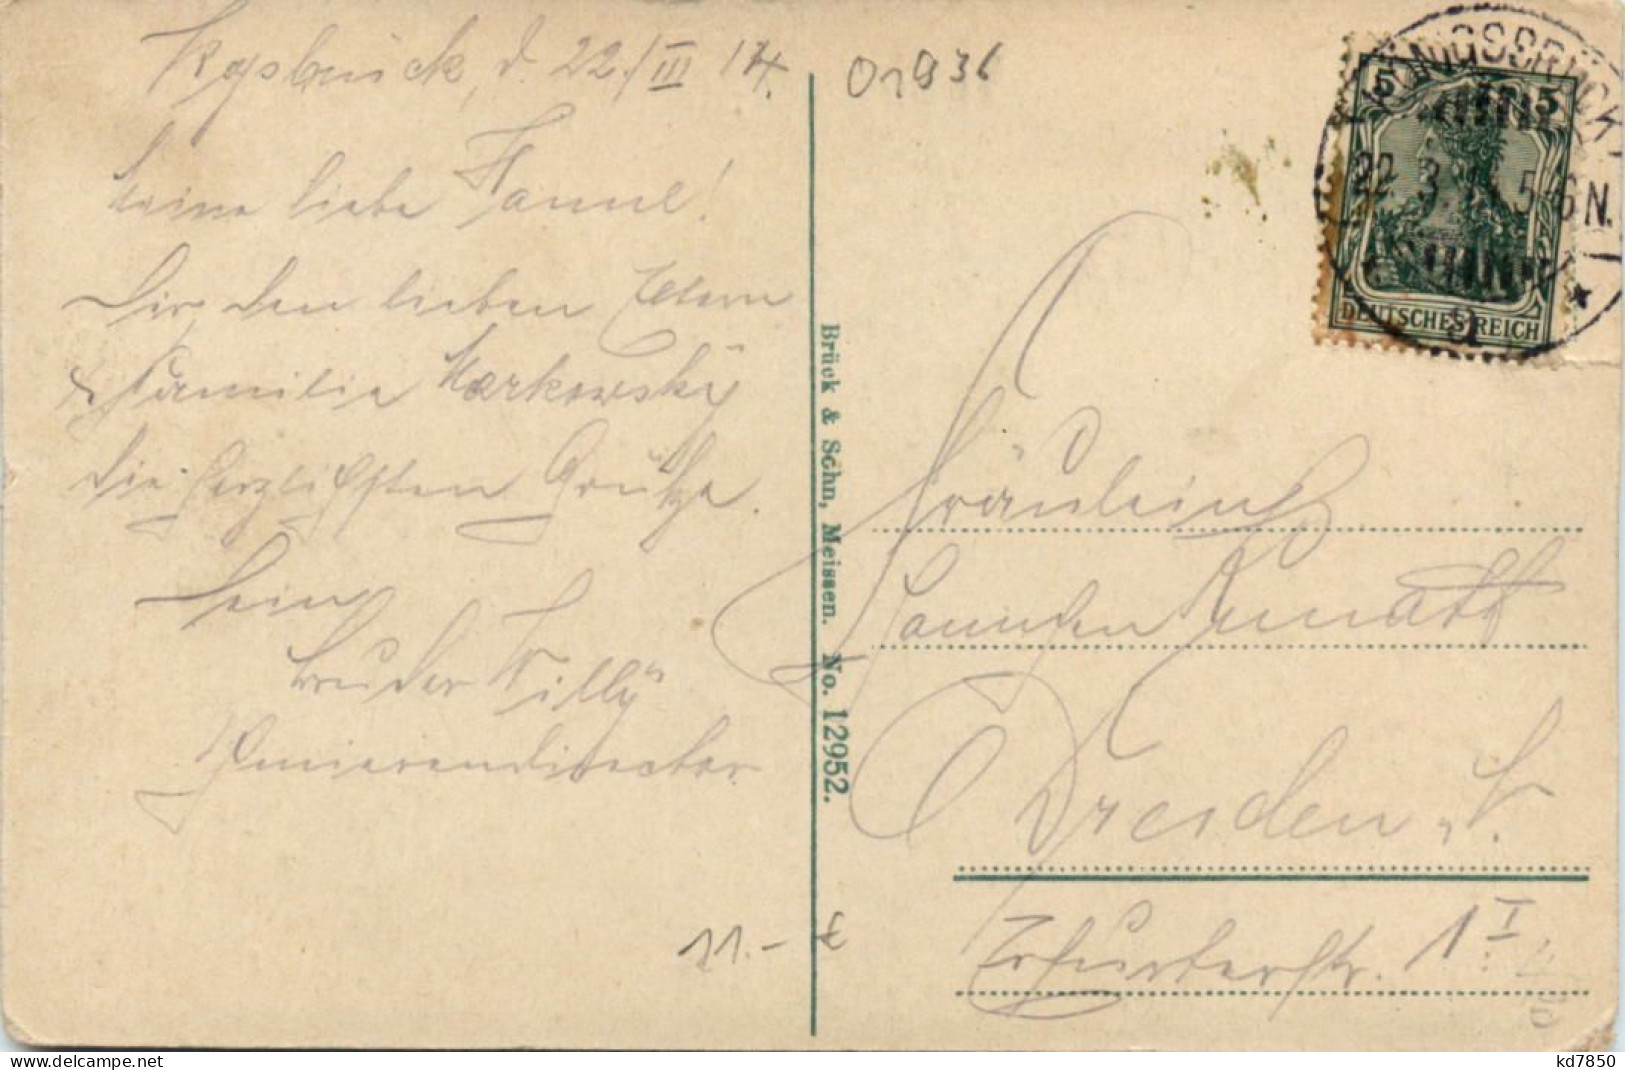 Kgsbrück, d. 22./III 14.
Meine liebe Hanne!
Dir, den lieben Eltern
& Familie Markowsky
die herzlichsten Grüße.
Dein
Bruder Willy
01936
KÖNIGSBRÜCK
22.3. 5-6N.
5 5
DEUTSCHES REICH
a
*
Brück & Sohn, Meissen. No. 12952.
Fräulein
Dresden N.
Erfurterstr. 1 I.
11.-
kd7850